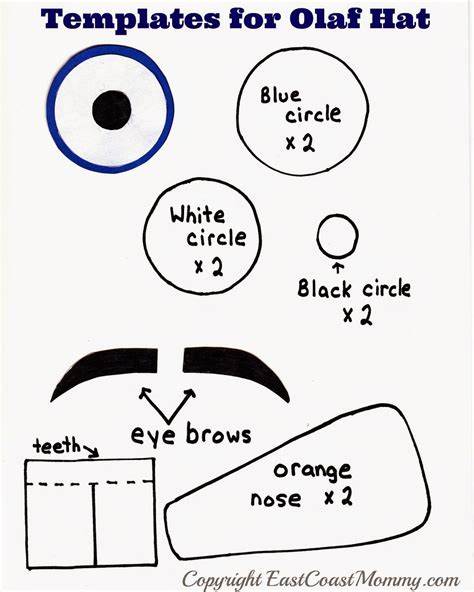 Templates for Olaf Hat
Blue
circle
x 2
White
circle
x 2
Black circle
x 2
eye brows
teeth
orange
nose x 2
Copyright EastCoastMommy.com